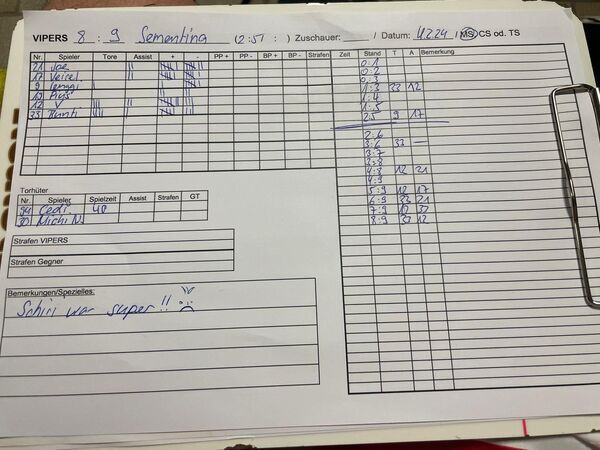 VIPERS 8 : 9 Sementina (2:5 : ) Zuschauer: Datum: 4.2.24 MS CS od. TS
Nr. Spieler Tore Assist + - PP + PP - BP + BP - Strafen Zeit Stand T A Bemerkung
21 Joe
17
9
19
12 V.
33
0:1
0:2
0:3
1:3 33 12
1:4
1:5
2:5 9 17
2:6
3:6 33 —
3:7
3:8
4:8 12 21
4:9
5:9 12 17
6:9 33 21
7:9 12 33
8:9 33 12
Torhüter
Nr. Spieler Spielzeit Assist Strafen GT
94 Cedi 40
30 Michi N.
Strafen VIPERS
Strafen Gegner
Bemerkungen/Spezielles:
Schiri war super!!